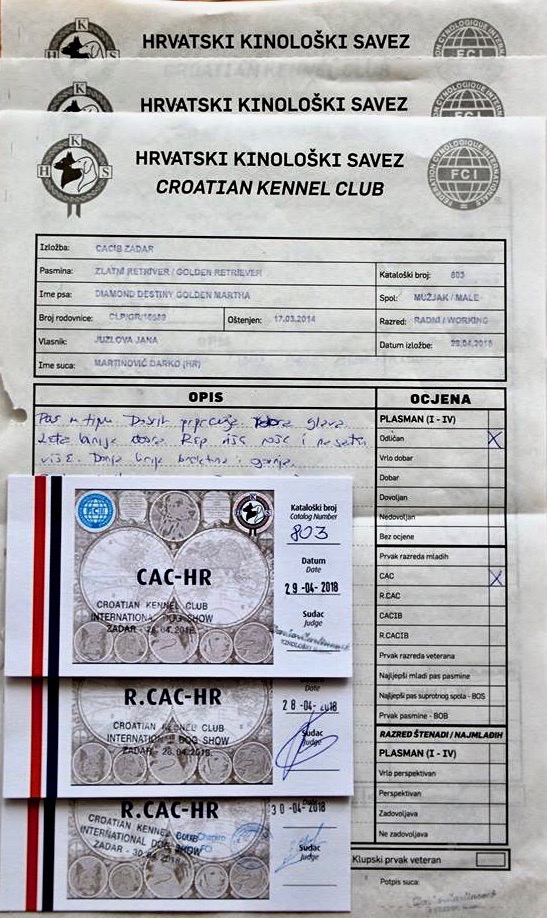 HRVATSKI KINOLOŠKI SAVEZ
CROATIAN KENNEL CLUB
FCI
HRVATSKI KINOLOŠKI SAVEZ
FCI
K
H S
HRVATSKI KINOLOŠKI SAVEZ
CROATIAN KENNEL CLUB
FEDERATION CYNOLOGIQUE INTERNATIONALE
FCI
Izložba: CACIB ZADAR
Pasmina: ZLATNI RETRIVER / GOLDEN RETRIEVER
Kataloški broj: 803
Ime psa: DIAMOND DESTINY GOLDEN MARTHA
Spol: MUŽJAK / MALE
Broj rodovnice:
Oštenjen: 17.03.2014
Razred: RADNI / WORKING
Vlasnik: JUZLOVA JANA
Datum izložbe: 29.04.2018
Ime suca: MARTINOVIĆ DARKO (HR)
OPIS
OCJENA
Pas u tipu. glava
dobra. Rep i
više. Donja linija i gornja
PLASMAN (I - IV)
Odličan X
Vrlo dobar
Dobar
Dovoljan
Nedovoljan
Bez ocjene
Prvak razreda mladih
CAC X
R.CAC
CACIB
R.CACIB
Prvak razreda veterana
Najljepši mladi pas pasmine
Najljepši pas suprotnog spola - BOS
Prvak pasmine - BOB
RAZRED ŠTENADI / NAJMLAĐIH
PLASMAN (I - IV)
Vrlo perspektivan
Perspektivan
Zadovoljava
Ne zadovoljava
Klupski prvak veteran
Potpis suca:
FCI
CAC-HR
CROATIAN KENNEL CLUB
INTERNATIONAL DOG SHOW
ZADAR - 29.04.2018
Kataloški broj
Catalog Number
803
Datum
Date
29 -04- 2018
Sudac
Judge
R.CAC-HR
CROATIAN KENNEL CLUB
INTERNATIONAL DOG SHOW
ZADAR - 28.04.2018
Date
28 -04- 2018
Sudac
Judge
R.CAC-HR
CROATIAN KENNEL CLUB
INTERNATIONAL DOG SHOW
ZADAR - 30.04.2018
30 -04- 2018
Date
Sudac
Judge